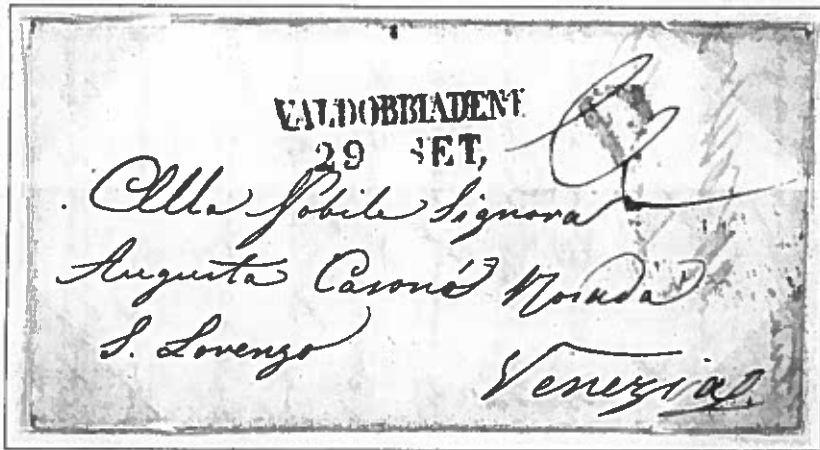 VALDOBBIADENE
29 SET,
Alla Nobile Signora
Augusta
S. Lorenzo
Venezia